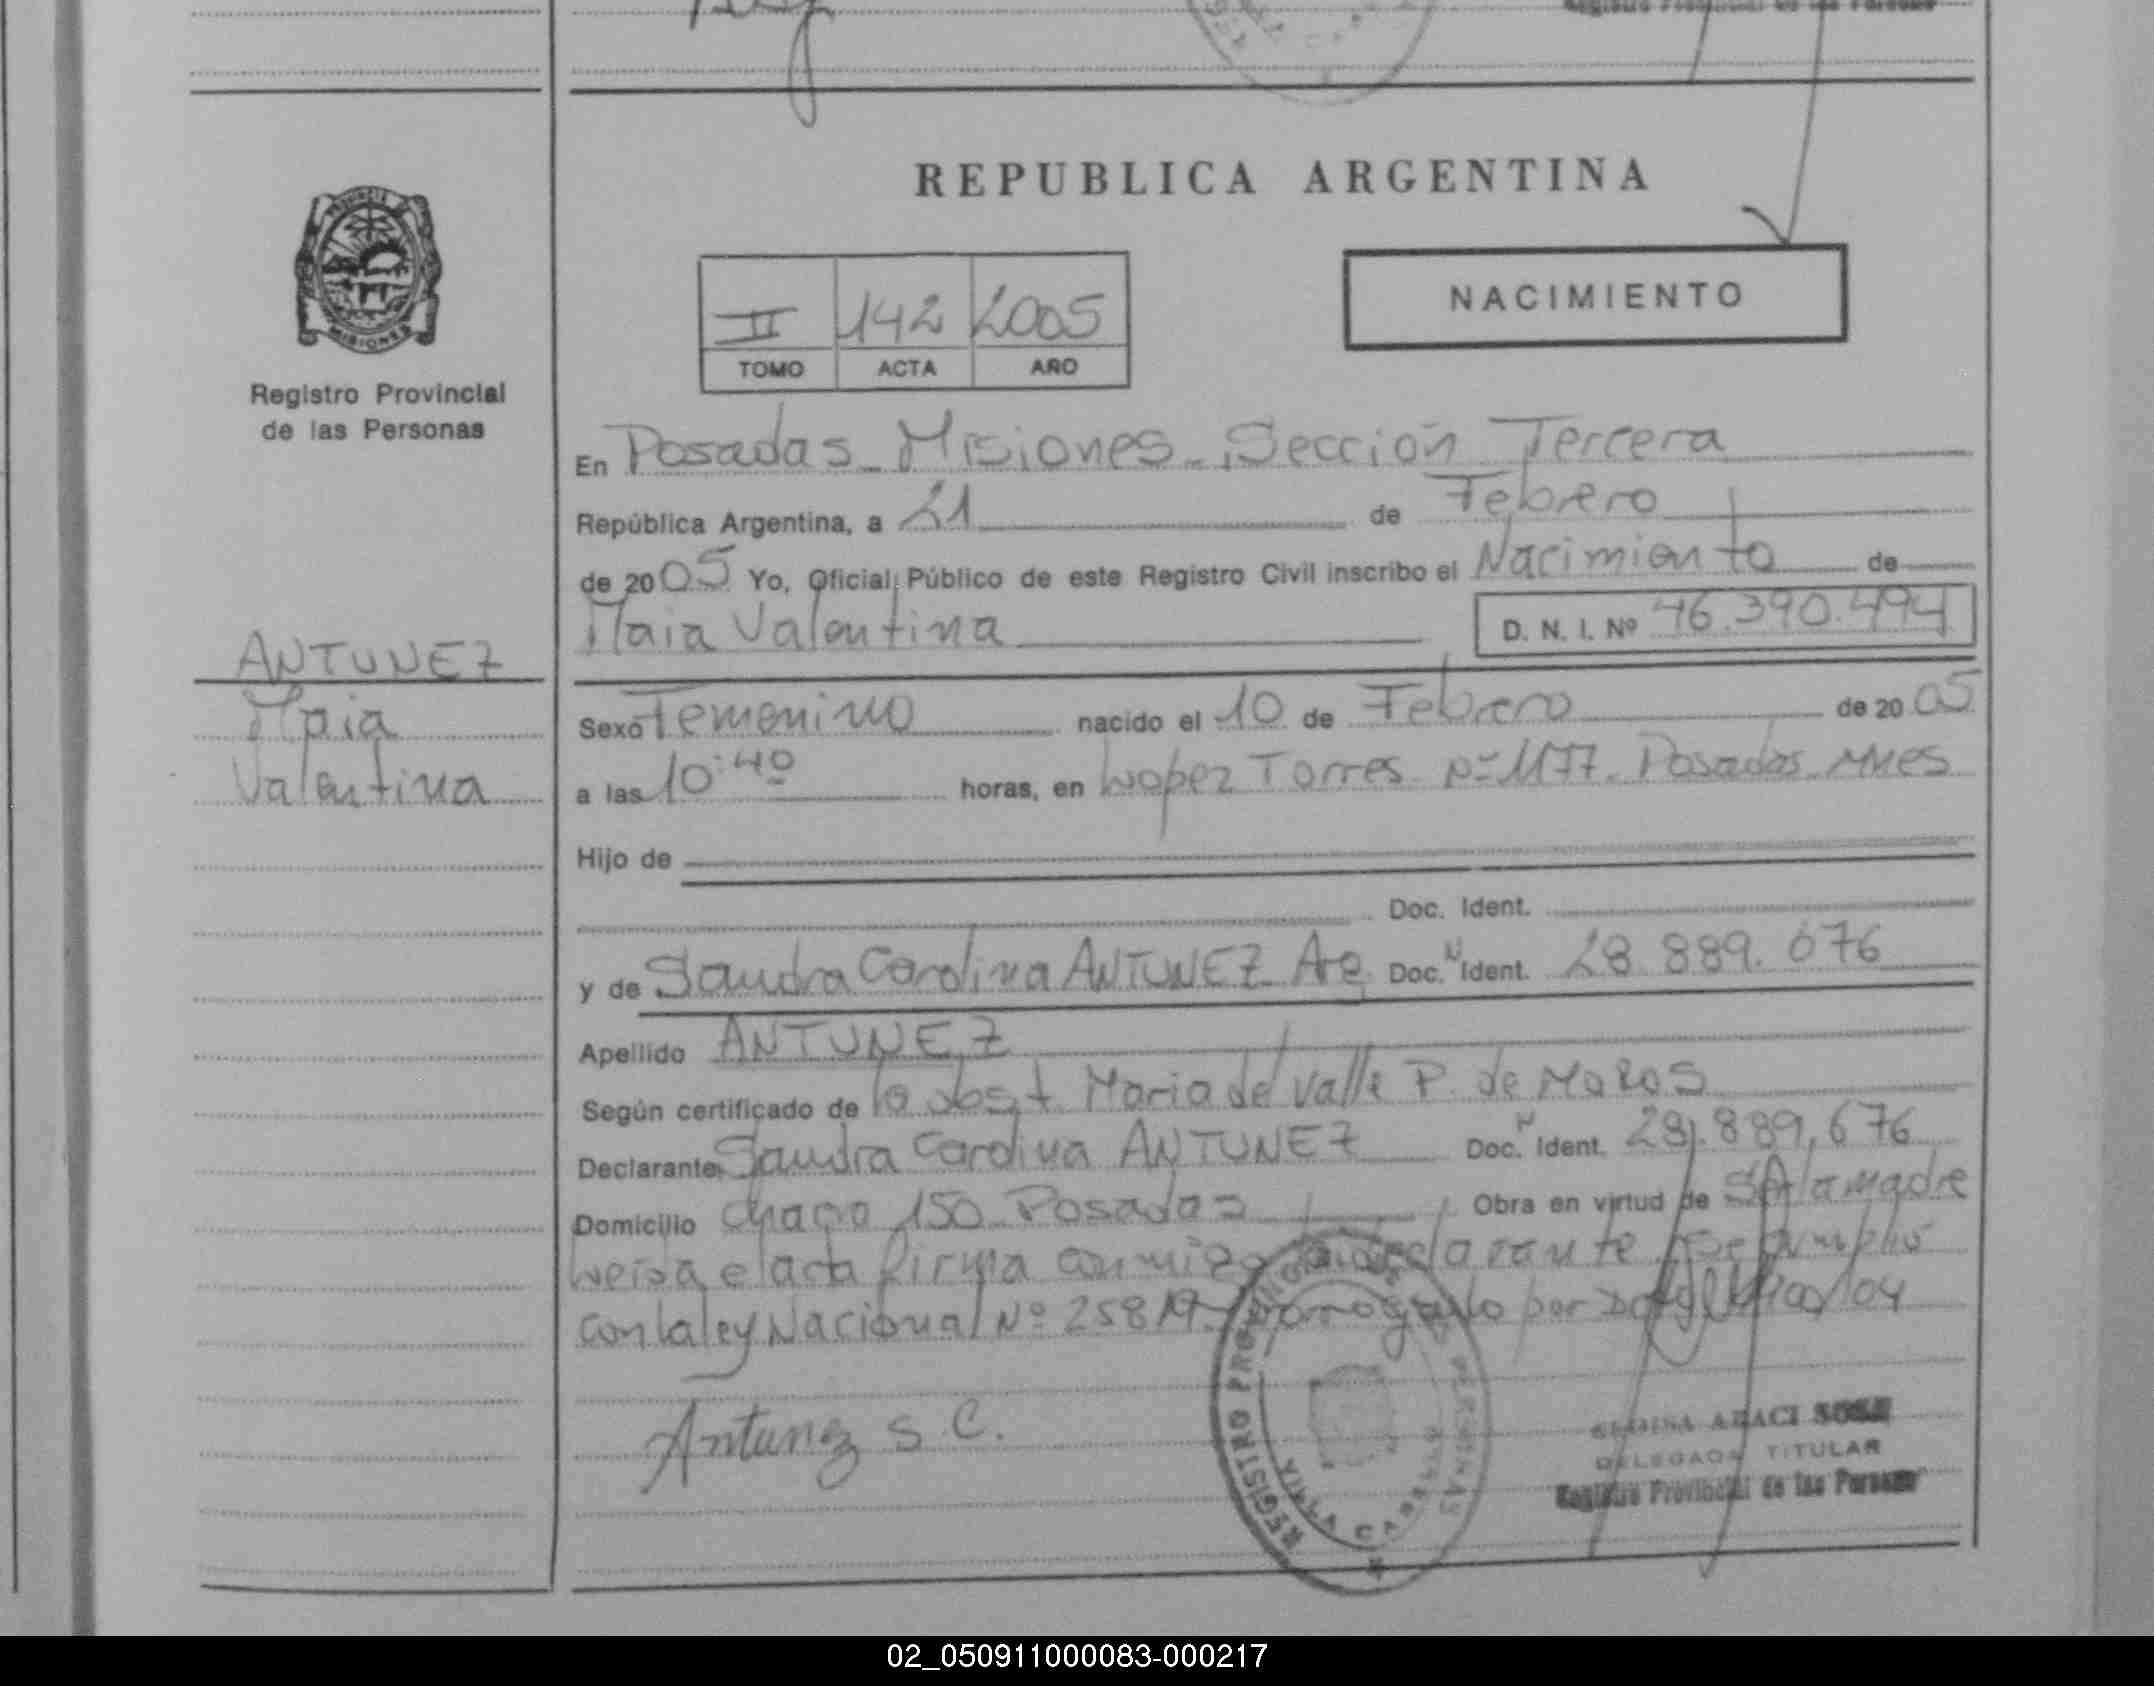 REPUBLICA ARGENTINA
PROVINCIA DE
MISIONES
Registro Provincial
de las Personas
II 142 2005
TOMO ACTA AÑO
NACIMIENTO
En Posadas Misiones Sección Tercera
República Argentina, a 21 de Febrero
de 2005 Yo, Oficial Público de este Registro Civil inscribo el Nacimiento de
Maia Valentina D. N. I. Nº 46.390.494
ANTUNEZ
Maia
Valentina
Sexo Femenino nacido el 10 de Febrero de 2005
a las 10:40 horas, en Lopez Torres Nº 1177 Posadas Mnes
Hijo de
Doc. Ident.
y de Sandra Carolina ANTUNEZ Arg. Doc. N Ident. 28.889.676
Apellido ANTUNEZ
Según certificado de la obst Maria del Valle P. de
Declarante Sandra Carolina ANTUNEZ Doc. N Ident. 28.889.676
Domicilio Chaco 150 Posadas Obra en virtud de la madre
leida el acta firma conmigo declarante
con la ley Nacional Nº 25819 por
Antunez S. C.
REGISTRO PROVINCIAL DE LAS PERSONAS
VILLA CABELLO
ARACI SOSA
DELEGADA TITULAR
Registro Provincial de las Personas
02_050911000083-000217